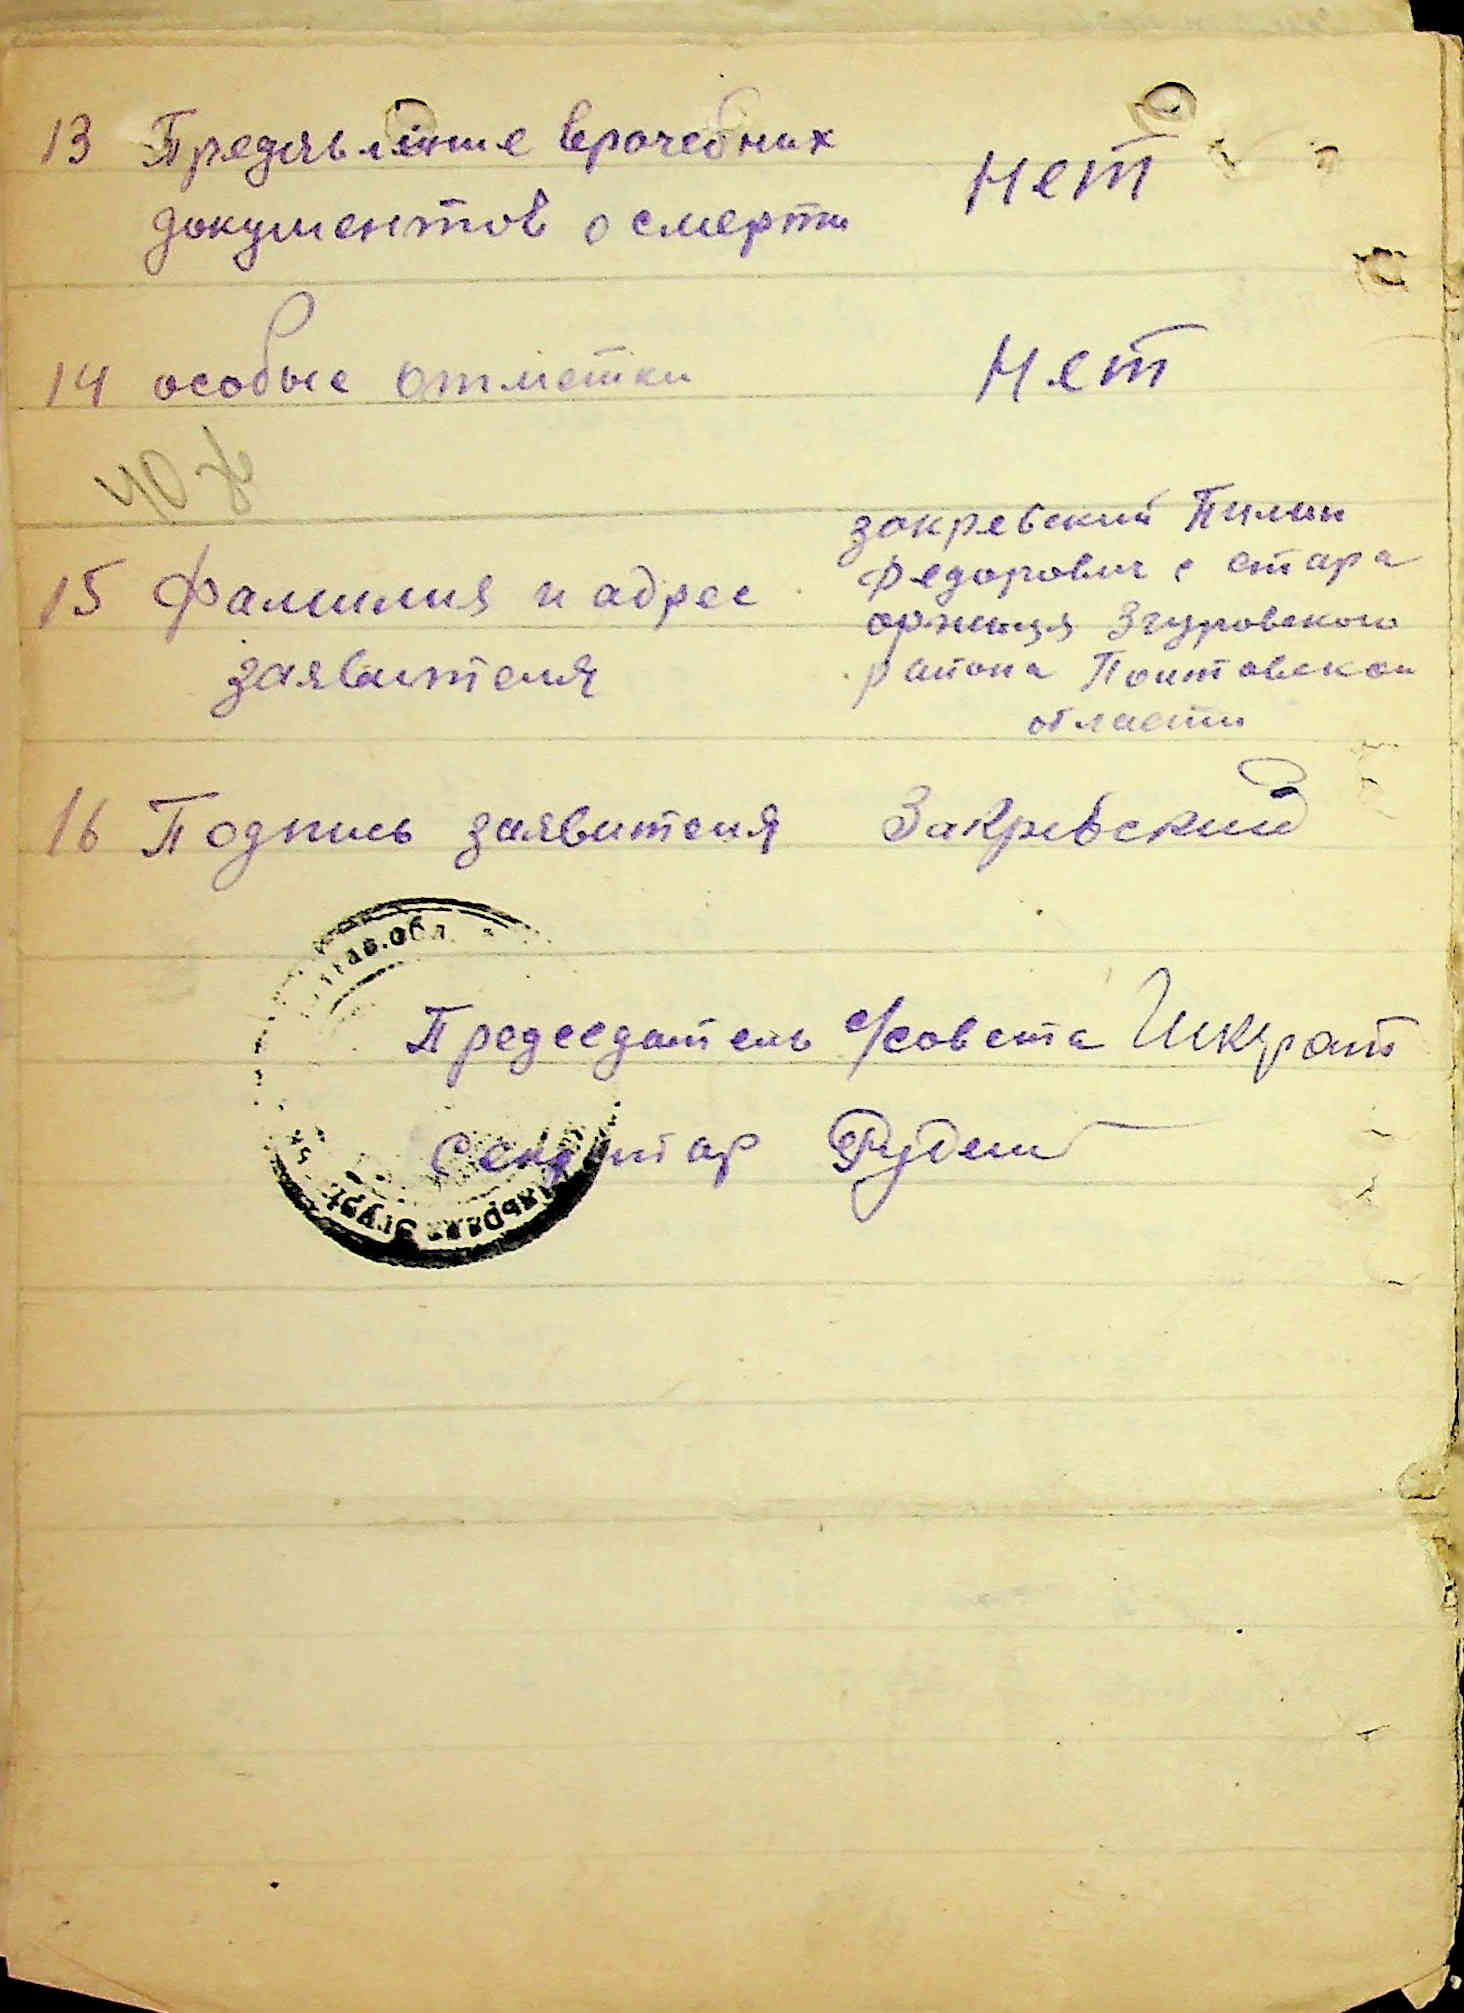 13 Предявление врачебних
документов о смерти
нет
14 особые отметки
нет
15 Фамилия и адрес
заявителя
закревский Пилип
Федорович с стара
оржиця Згуровского
района Полтавской
области
16 Подпись заявителя Закревский
тав.Обл.
Председатель с/совета Шкурат
Секретар